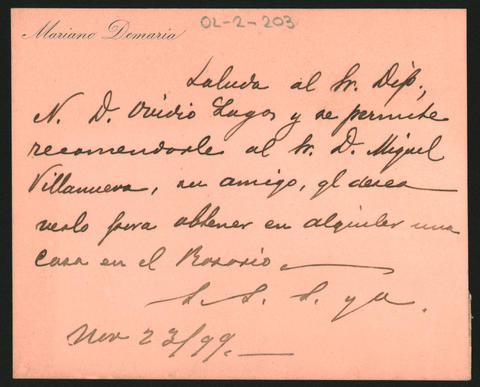 OL-2-203
Mariano Demaria
Saluda al Sr. Dip.,
N. D. Ovidio Lagos y se permite
recomendarle al Sr. D. Miguel
Villanueva, su amigo, ql desea
verlo para obtener en alquiler una
casa en el Rosario
S. S. S. y a.
Nov 23/99.